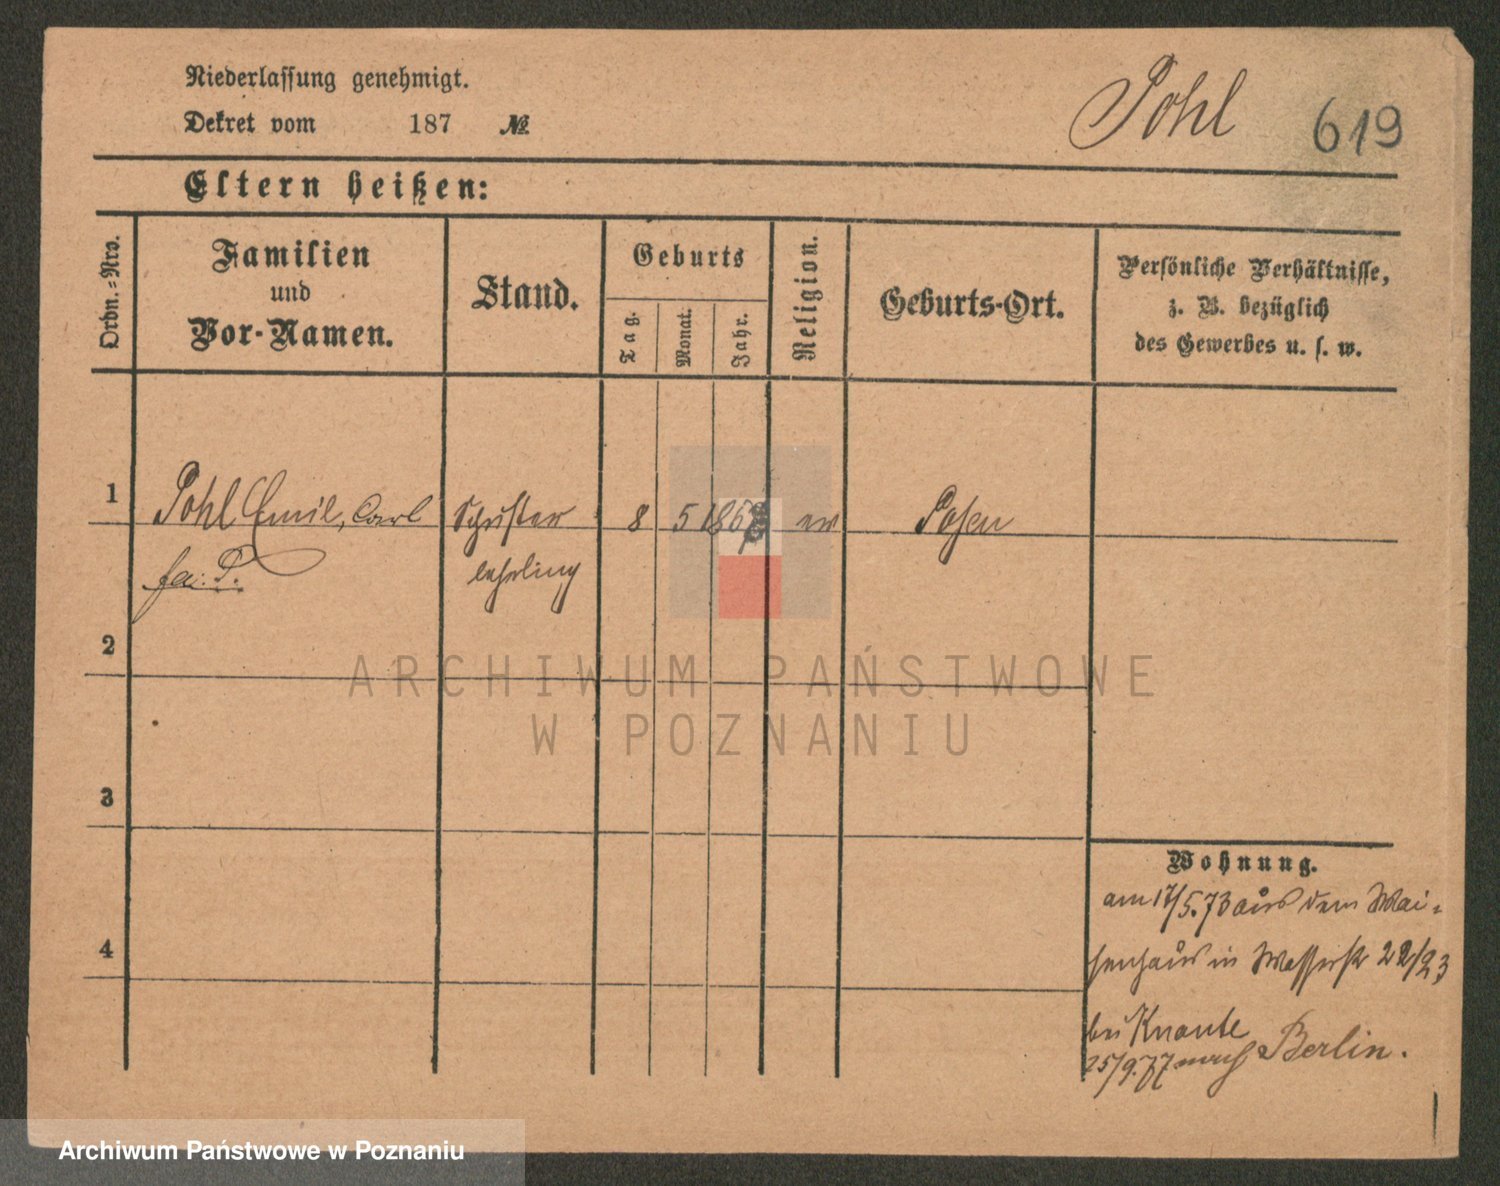 Niederlassung genehmigt.
Dekret vom 187 №
Pohl 619
Eltern heißen:
Ordn.=Nro.
Familien
und
Vor-Namen.
Stand.
Geburts
Tag.
Monat.
Jahr.
Religion.
Geburts-Ort.
Persönliche Verhältnisse,
z. B. bezüglich
des Gewerbes u. s. w.
1 Pohl Emil, Carl Schuster 8 5 186 ev Posen
lehrling
2
3
4
Wohnung.
am 17/5.73 aus dem Wai-
senhaus in Wasserstr 22/23
bei Knaute
25/9.77 nach Berlin.
ARCHIWUM PAŃSTWOWE
W POZNANIU
Archiwum Państwowe w Poznaniu